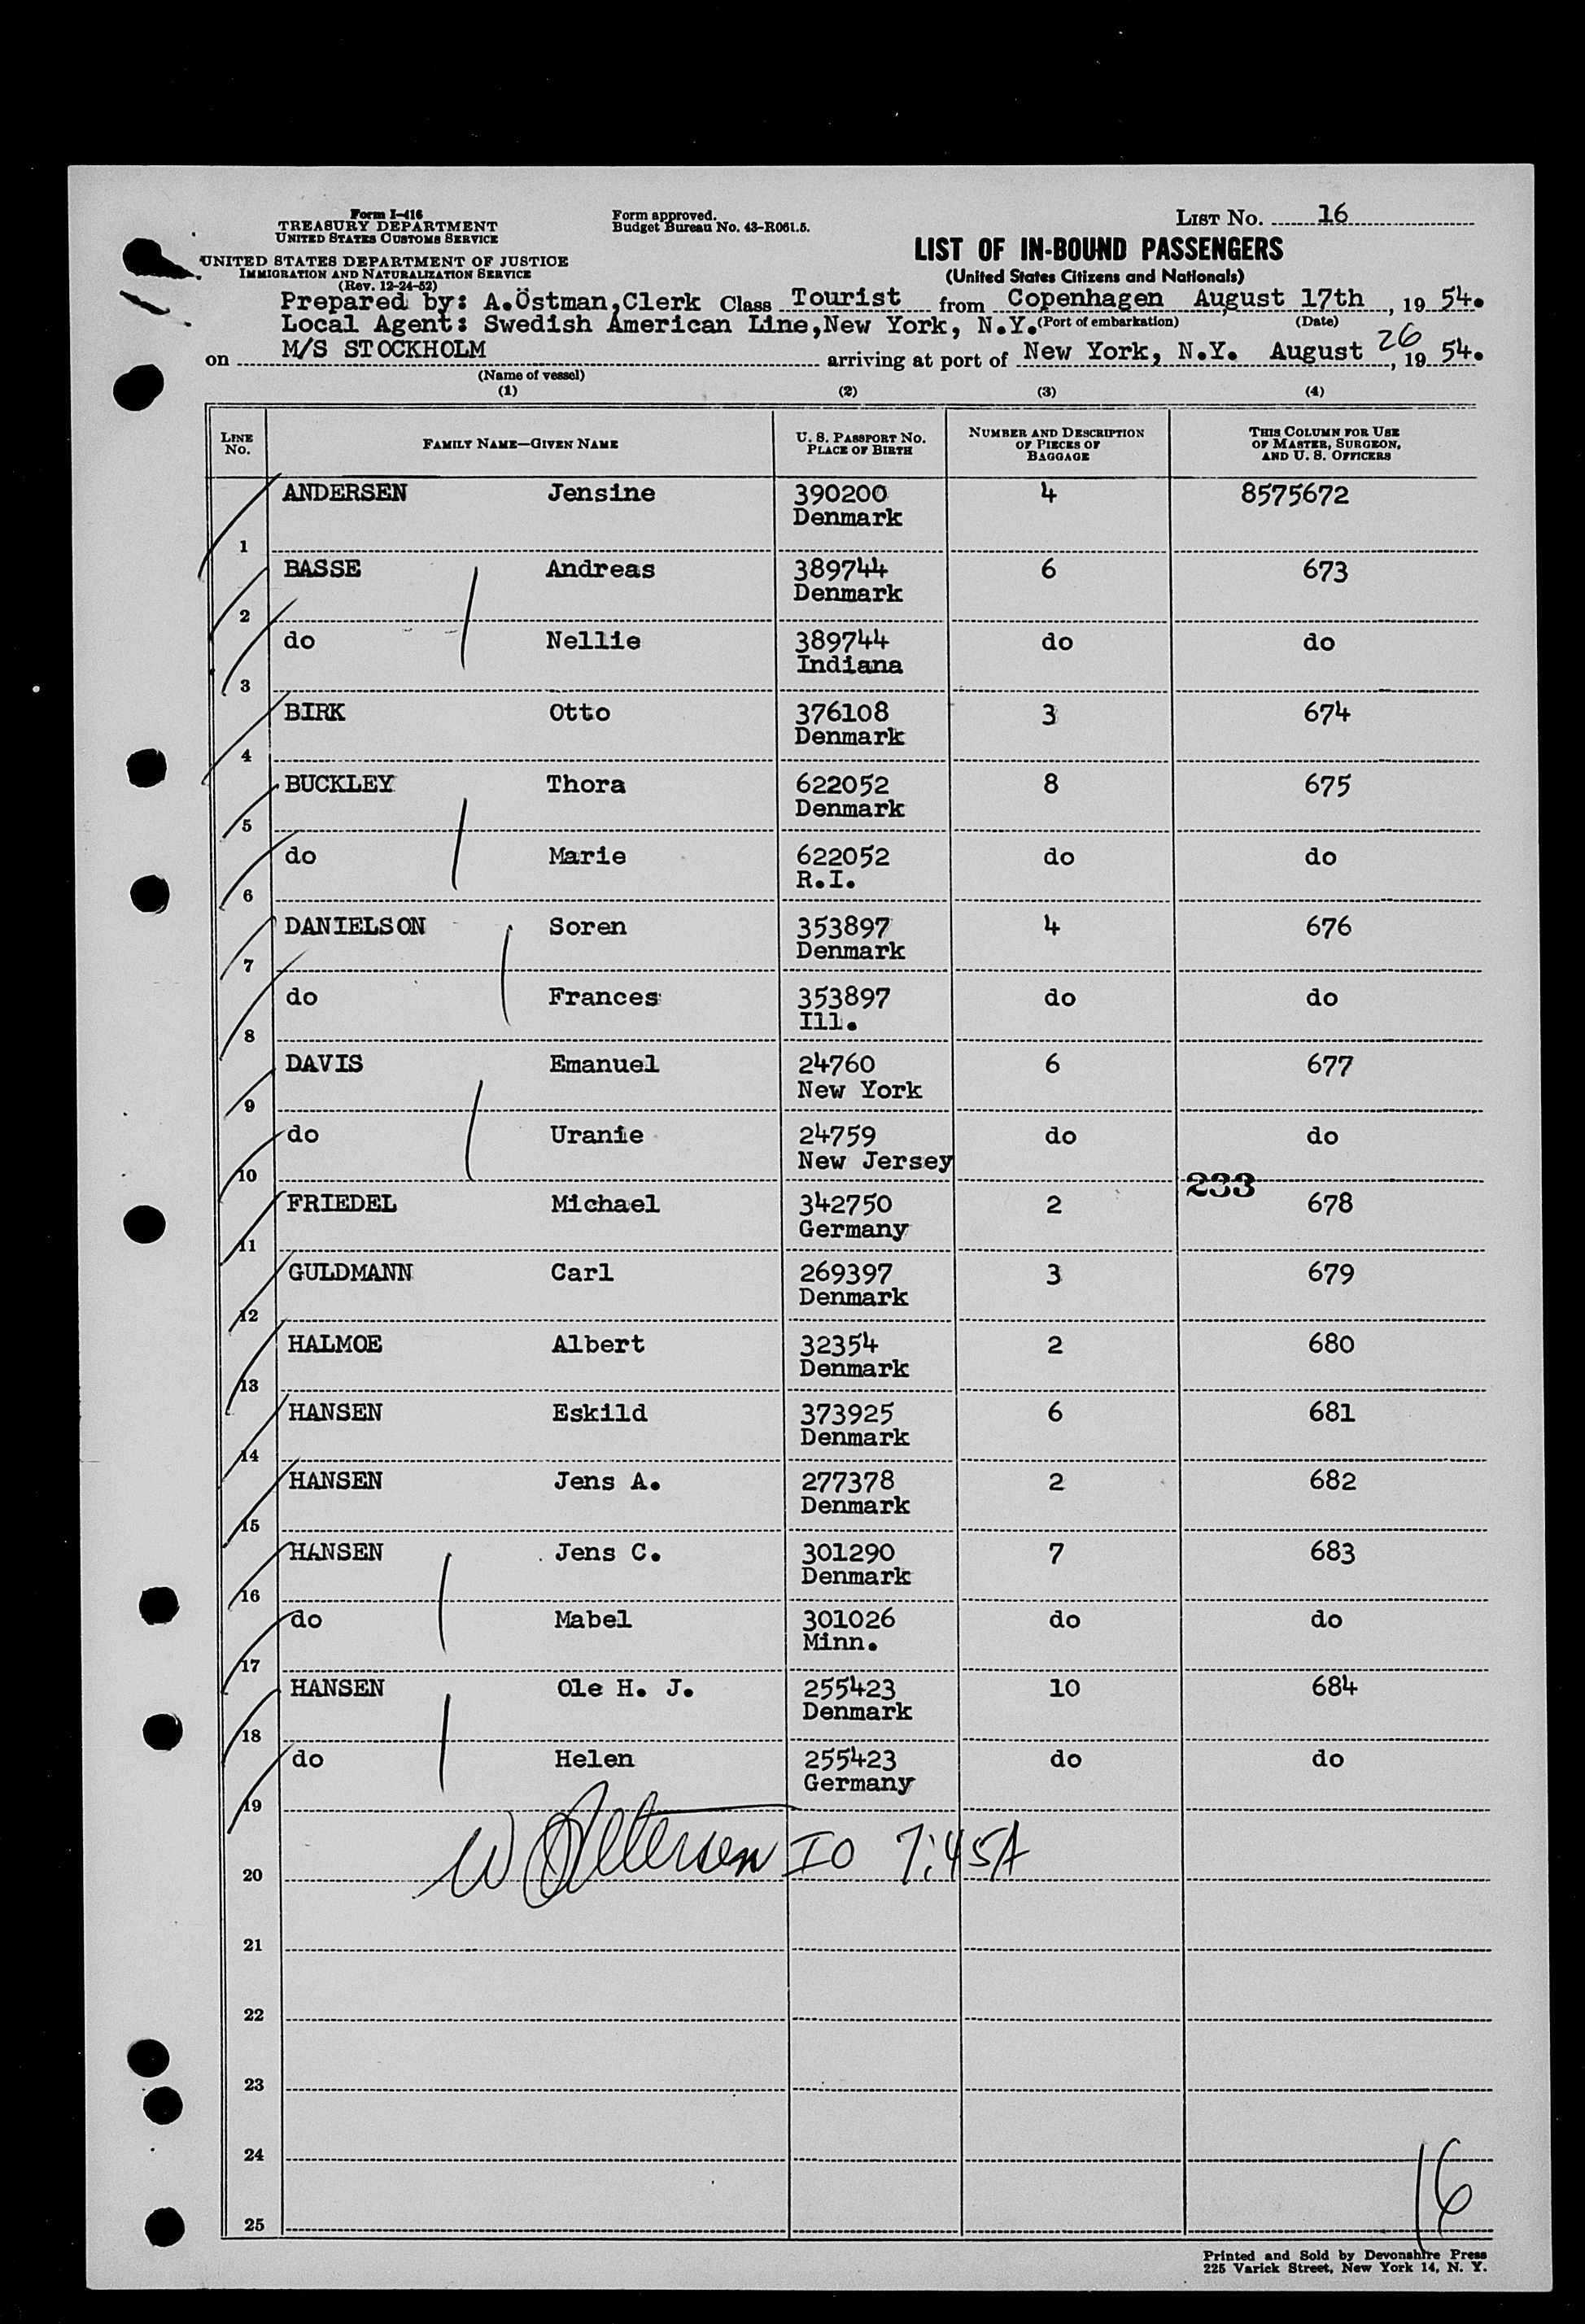 Form I-416
TREASURY DEPARTMENT
UNITED STATES CUSTOMS SERVICE
UNITED STATES DEPARTMENT OF JUSTICE
IMMIGRATION AND NATURALIZATION SERVICE
(Rev. 12-24-52)
Form approved.
Budget Bureau No. 43-R061.5.
LIST NO. 16
LIST OF IN-BOUND PASSENGERS
(United States Citizens and Nationals)
Prepared by: A.Östman,Clerk Class Tourist from Copenhagen August 17th, 19 54.
Local Agent: Swedish American Line,New York, N.Y. (Port of embarkation) (Date)
on M/S STOCKHOLM arriving at port of New York, N.Y. August 26, 19 54.
(Name of vessel)
(1) (2) (3) (4)
LINE NO. FAMILY NAME—GIVEN NAME U. S. PASSPORT NO. PLACE OF BIRTH NUMBER AND DESCRIPTION OF PIECES OF BAGGAGE THIS COLUMN FOR USE OF MASTER, SURGEON, AND U. S. OFFICERS
ANDERSEN Jensine 390200 4 8575672
Denmark
1
BASSE Andreas 389744 6 673
Denmark
2
do Nellie 389744 do do
Indiana
3
BIRK Otto 376108 3 674
Denmark
4
BUCKLEY Thora 622052 8 675
Denmark
5
do Marie 622052 do do
R.I.
6
DANIELSON Soren 353897 4 676
Denmark
7
do Frances 353897 do do
Ill.
8
DAVIS Emanuel 24760 6 677
New York
9
do Uranie 24759 do do
New Jersey
10
233
FRIEDEL Michael 342750 2 678
Germany
11
GULDMANN Carl 269397 3 679
Denmark
12
HALMOE Albert 32354 2 680
Denmark
13
HANSEN Eskild 373925 6 681
Denmark
14
HANSEN Jens A. 277378 2 682
Denmark
15
HANSEN Jens C. 301290 7 683
Denmark
16
do Mabel 301026 do do
Minn.
17
HANSEN Ole H. J. 255423 10 684
Denmark
18
do Helen 255423 do do
Germany
19
IO 7:45A
20
21
22
23
24
25
16
Printed and Sold by Devonshire Press
225 Varick Street, New York 14, N. Y.